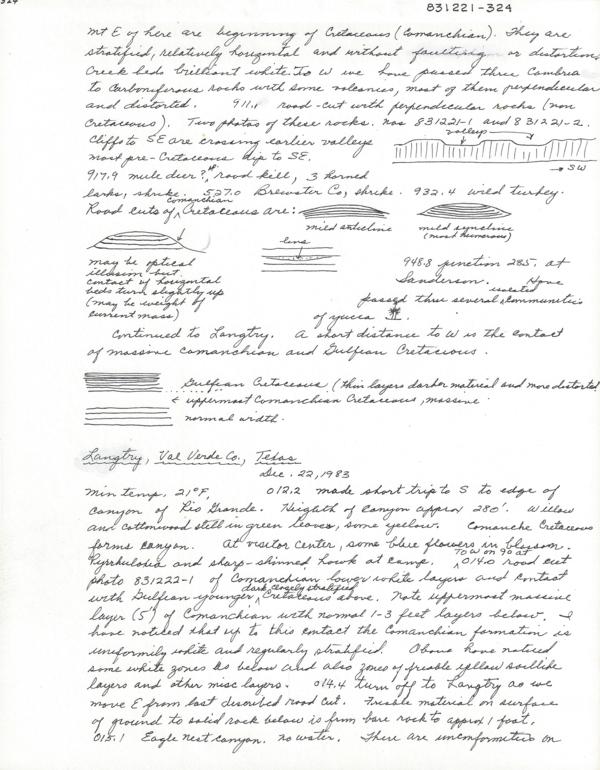 324
831221-324
Mt E of here are beginning of Cretaceous (Comanchian). They are
stratified, relatively horizontal and without faulting or distortion.
Creek beds brilliant white. To W we have passed thru Cambria
to Carboniferous rocks with some volcanics, most of them perpendicular
and distorted. 911.1 road-cut with perpendicular rocks (non
Cretaceous). Two photos of these rocks. nos 831221-1 and 831221-2.
Cliffs to SE are crossing earlier valleys
valleys
most pre-Cretaceous dip to SE.
→ SW
917.9 mule deer?, road kill, 3 horned
larks, shrike. 527.0 Brewster Co, shrike. 932.4 wild turkey.
Road cuts of Comanchian Cretaceous are:
mild anticline
mild syncline
(most numerous)
lens
may be optical
illusion but
contact of horizontal
beds turn slightly up
(may be weight of
current mass)
948.8 junction 285, at
Sanderson. Have
passed thru several isolated communities
of yucca.
Continued to Langtry. A short distance to W is the contact
of massive Comanchian and Gulfian Cretaceous.
Gulfian Cretaceous (thin layers darker material and more distorted
uppermost Comanchian Cretaceous, massive
normal width.
Langtry, Val Verde Co., Texas
Dec. 22, 1983
Min temp. 21°F, 012.2 made short trip to S to edge of
canyon of Rio Grande. Heigth of canyon approx 280'. Willow
and cottonwood still in green leaves, some yellow. Comanche Cretaceous
forms canyon. At visitor center, some blue flowers in blossom.
Pyrrhuloxia and sharp-shinned hawk at camp. To W on 90 at 014.0 road cut
photo 831222-1 of Comanchian lower white layers and contact
with Gulfian younger dark, closely stratified Cretaceous above. Note uppermost massive
layer (5') of Comanchian with normal 1-3 feet layers below. I
have noticed that up to this contact the Comanchian formation is
uniformily white and regularly stratified. Above have noticed
some white zones as below and also zones of friable yellow soillike
layers and other misc layers. 014.4 turn off to Langtry as we
move E from last described road cut. Friable material on surface
of ground to solid rock below is from bare rock to approx 1 foot.
015.1 Eagle Nest Canyon. no water. There are unconformities on